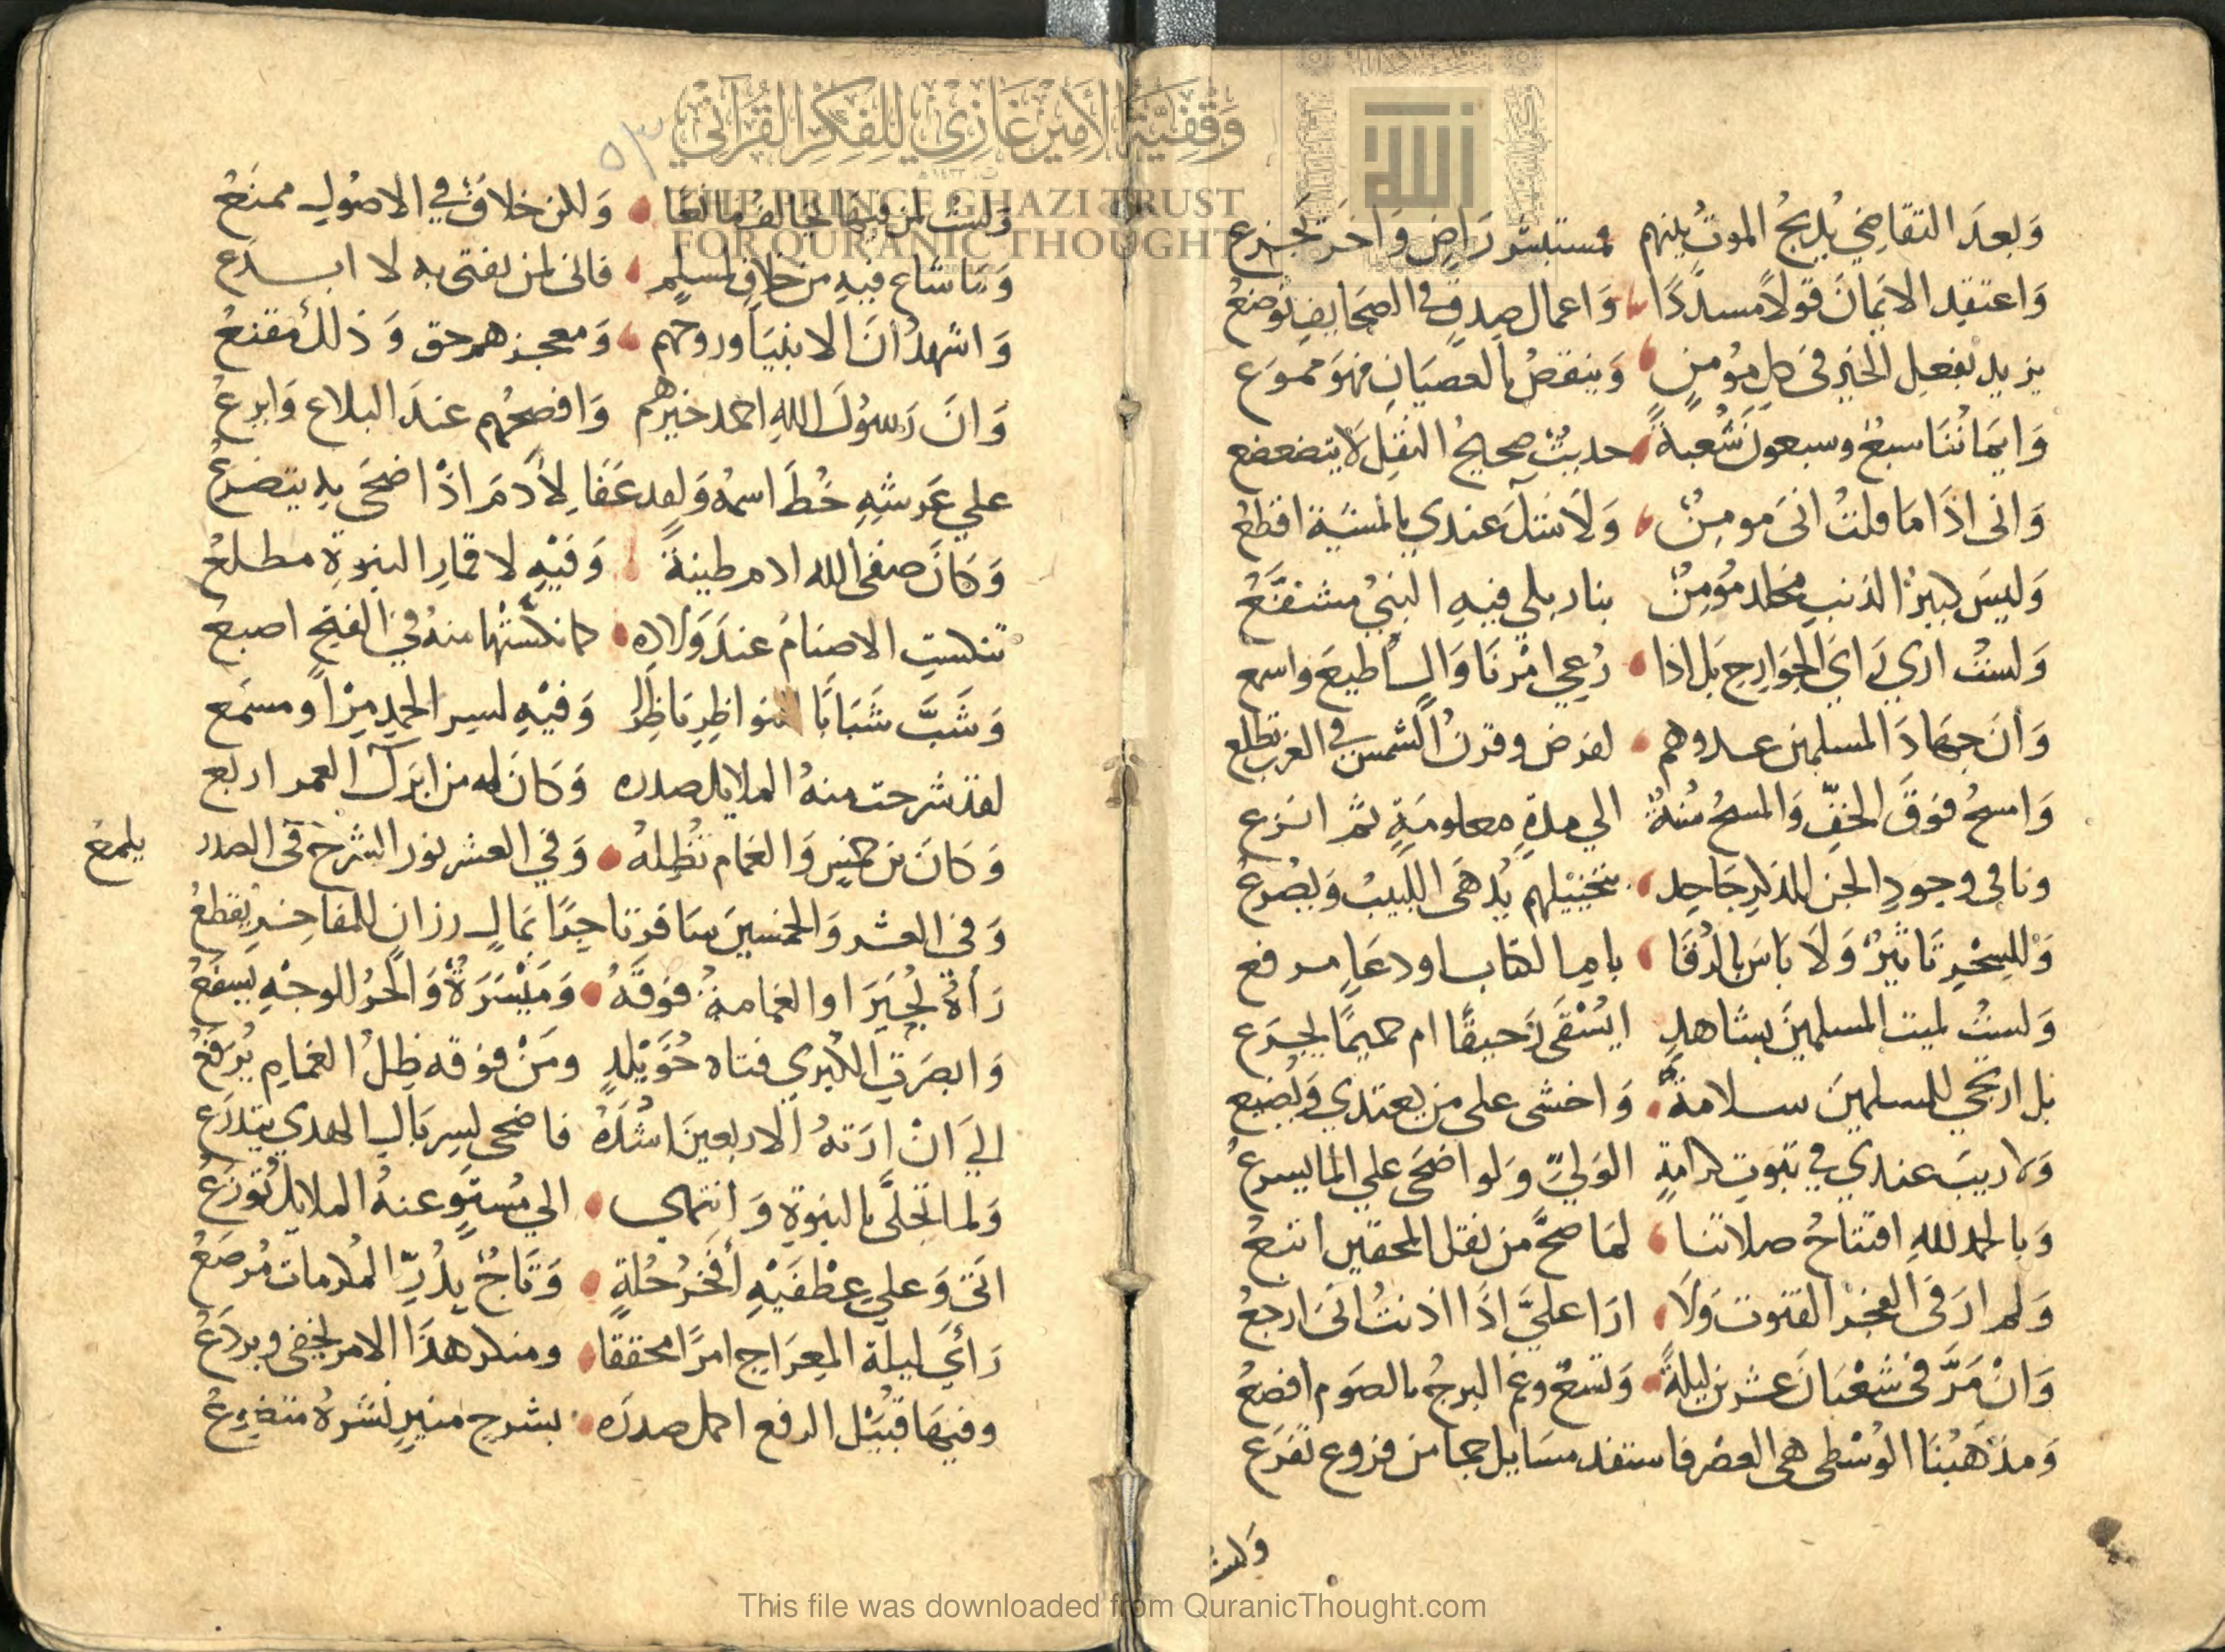 وَبعدَ التقاضي يُذبحُ الموتُ بينهم فمستبشر رَاضٍ وَاخَر يجزع
وَاعتقِد الايمانَ قولاً مسدَّدًا وَاعمال صِدقٍ في الصحَايفِ توضعُ
يزيد بفعلِ الخيرِ في كل مؤمنٍ وَينقصُ بالعصيَانِ فهوَ مموَع
وَايمَانُنَا سبعٌ وسبعونَ شعبةً حديثٌ صحيحُ النقلِ لا يتضعضع
وَاني اذَا مَا قلتُ اني مومنٌ وَلا شكَ عندي بالمشيَة اقطعُ
وَليسَ كبيرُ الذنبِ مخلد مؤمنٌ بنار بلي فيهِ النبيُ مشفَّعُ
وَلستُ اري رَاي الجوَارح بل اذا دُعي امرنَا وَالٍ اطيعَ واسمع
وَانَ جهَادَ المسلمينَ عدوهم لفرض وقرنُ الشمس في الغرب تطلع
وَامسحُ فوَقَ الخفِّ وَالمسحُ سُنةٌ الي مدةٍ معلومَةٍ ثم انزع
ونافى وجودِ الجن للذكرِ جَاحِد بتخييلهم يُدهَى اللبيبُ وَيصرعُ
وَللسِحْرِ تَاثيرٌ وَلا بَاسَ بالرُقَا بايِ الكتاب اودعَاءٍ مرفع
وَلستُ لميت المسلمينَ بشاهدٍ ايُسْقَى رَحيقًا ام حميمًا يجرَع
بل ارتجي للمسلمينَ سلامةً وَاخشى على من يعتدي وَيُضيع
وَلا ريبَ عندي في ثبوتِ كرامةٍ الوَليِّ وَلو اضحَى علي الماء يسرعُ
وَبالحمد للهِ افتتاحُ صلاتنا لمَا صحَّ من نقل المحقين اتبعُ
وَلم ارَ في الفجر القنوت وَلا ارَا عليَّ اذَا اذنتُ اني ارجعُ
وَانْ مَرَّ في شعْبَانَ عشرين ليلةً وَتسعٌ وغم البرجُ بالصَوم اقطعُ
وَمذهبُنَا الوُسْطى هي العصر فاستفد مسَايل جما من فروع تفرَع
وَلستُ
وَلستُ لمن فيهَا يخالف مانعًا وَلكن خلافٌ في الاصُولِ ممنَعُ
وَمَا شاع فيهِ من خلافٍ لمسلمٍ فانى لمن يفتى به لا ابدَع
وَاشهدُ انَ الانبيَا وروحَهم وَمعجزهم حق وَذلك مُقنعُ
وَانَ رَسولَ اللهِ احمد خيرهم وَافصحُهم عندَ البلاغ وَابرعُ
علي عَرشِهِ خُطَ اسمهُ وَلهُ عَفَا لِآدَمَ اذْ اضحَى بهِ يتضرعُ
وَكانَ صفى الله ادم طينةً وَفيْهِ لاقمارِ النبوةِ مطلعُ
تنكستِ الاصنامُ عندَ وَلادِه كما نكسَّتْها منهُ في الفتحِ اصبعُ
وَشَبَّ شَبَابًا للنواظرِ نَاظِرا وَفيْهِ لسرِ الحمدِ مرأ ومسمَع
لقد شرحت منهُ الملايك صدره وَكانَ له من ابرَك العمر اربع
وَكانَ بن خمسٍ وَالغمام تُظِلهُ وَفي العشر نور الشرح في الصدر يلمعُ
وَفي العشر وَالخمسينَ سَافرَ تاجرًا بمَالٍ رزانٍ للمفاخرِ يقطعُ
رَأهُ بُحيرَا والغمامةُ فوَقهُ وَمَيْسَرَةٌ وَالحرُ للوجْهِ يَسفعُ
وَابصرَتِ الكبري فتاة خُوَيْلدٍ ومَنْ فوَقه ظِلُ الغمامِ يُرفعُ
اليَ انْ ارَتهُ الاربعينَ اشُدَّهُ فاضحى لسِربَالِ الهدي يتدرَع
وَلما تحَلَّى بالنبوةِ وَانتهى الي مُستوٍ عنهُ الملايك تُوزَعُ
اتى وَعليَ عِطْفَيْهِ أفخرُ حُلةٍ وَتاجٌ بِدُرِّ المكرمات مُرصَعُ
رَأي ليلة المِعرَاج امرًا محققا ومنكر هذا الامر يخفى ويردَعُ
وفيهَا قبَيْل الرفع اكمل صدرَه بشرحٍ منيرٍ نشرهُ متضوعُ
وَقْفِيَّةُ الأَمِيرِ غَازِي لِلْفِكْرِ القُرْآنِي
THE PRINCE GHAZI TRUST
FOR QUR'ANIC THOUGHT
٥٣
This file was downloaded from QuranicThought.com